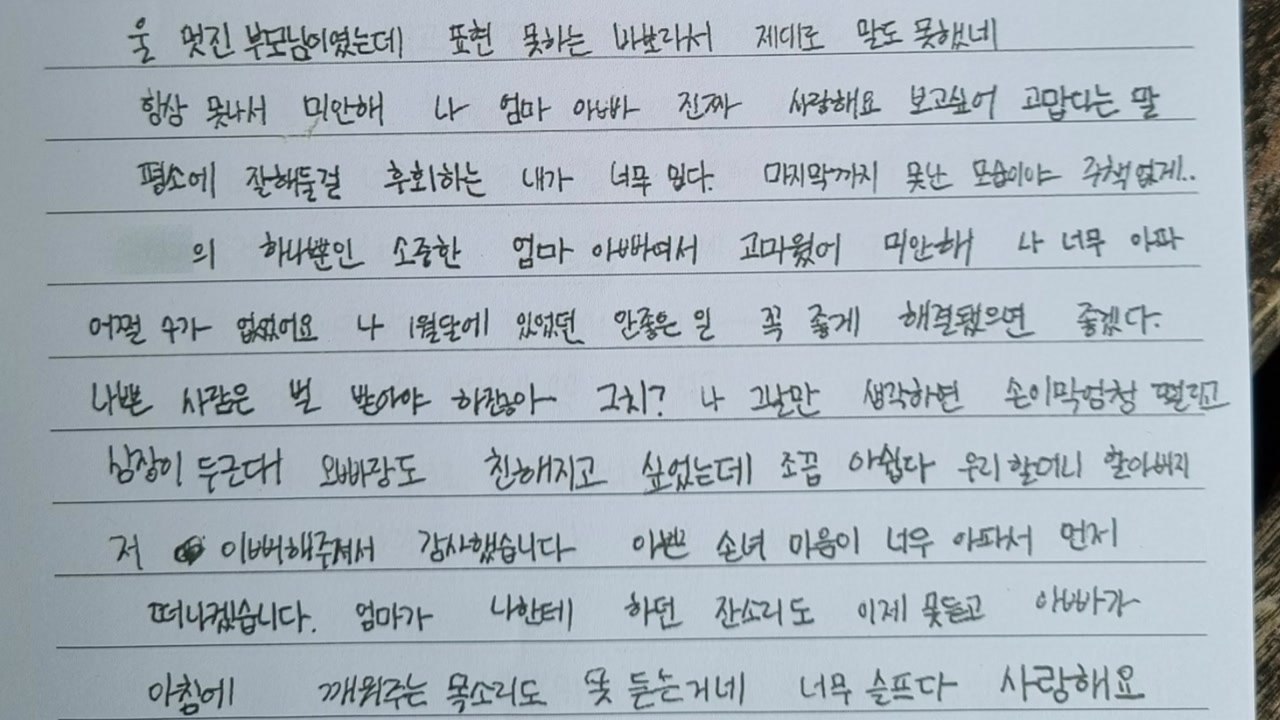 울 멋진 부모님이였는데 표현 못하는 바보라서 제대로 말도 못했네
항상 못나서 미안해 나 엄마 아빠 진짜 사랑해요 보고싶어 고맙다는 말
평소에 잘해둘걸 후회하는 내가 너무 밉다. 마지막까지 못난 모습이야 주책없게..
의 하나뿐인 소중한 엄마 아빠여서 고마웠어 미안해 나 너무 아파
어쩔 수가 없었어요 나 1월달에 있었던 안좋은 일 꼭 좋게 해결됐으면 좋겠다.
나쁜 사람은 벌 받아야 하잖아 그치? 나 그날만 생각하면 손이막엄청 떨리고
심장이 두근대 오빠랑도 친해지고 싶었는데 조끔 아쉽다 우리할머니 할아버지
저 이뻐해주셔서 감사했습니다 아쁜 손녀 마음이 너무 아파서 먼저
떠나겠습니다. 엄마가 나한테 하던 잔소리도 이제 못듣고 아빠가
아침에 깨워주는 목소리도 못 듣는거네 너무 슬프다 사랑해요